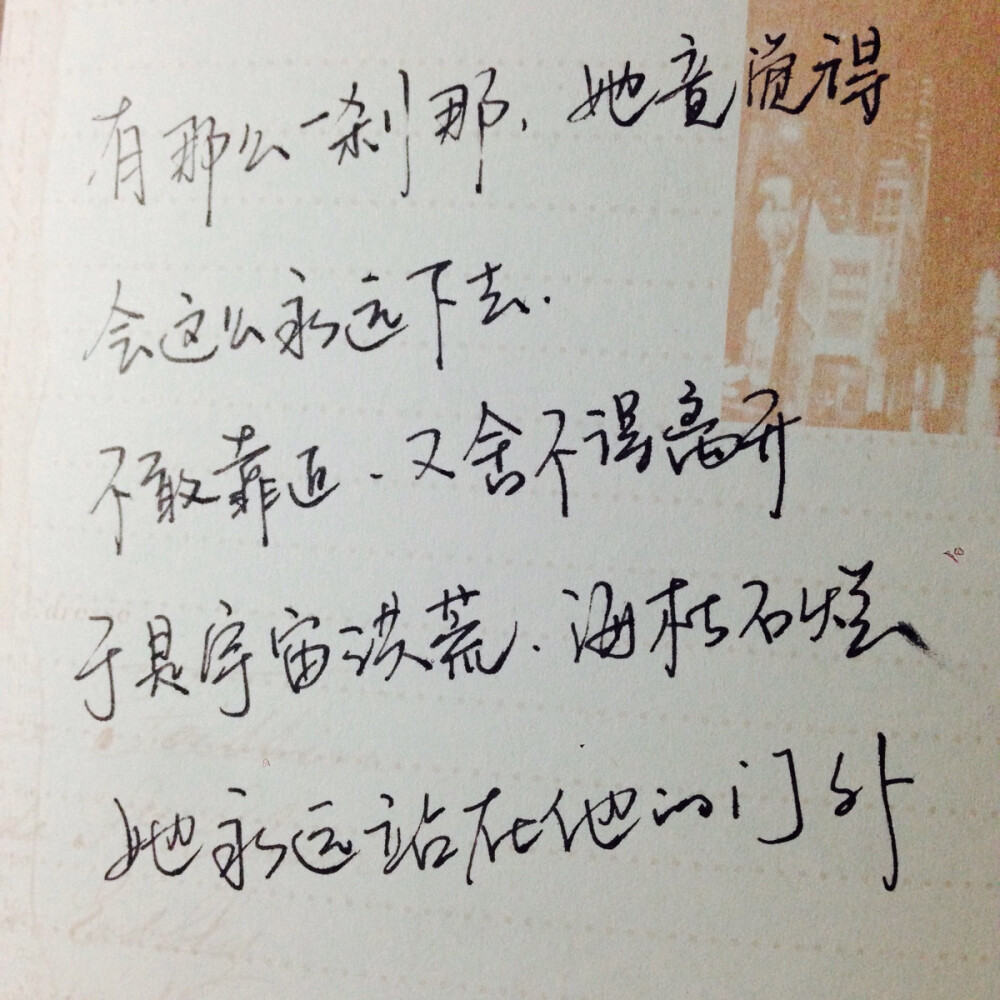 有那么一刹那，她竟觉得
会这么永远下去.
不敢靠近.又舍不得离开
于是宇宙洪荒.海枯石烂
她永远站在他的门外